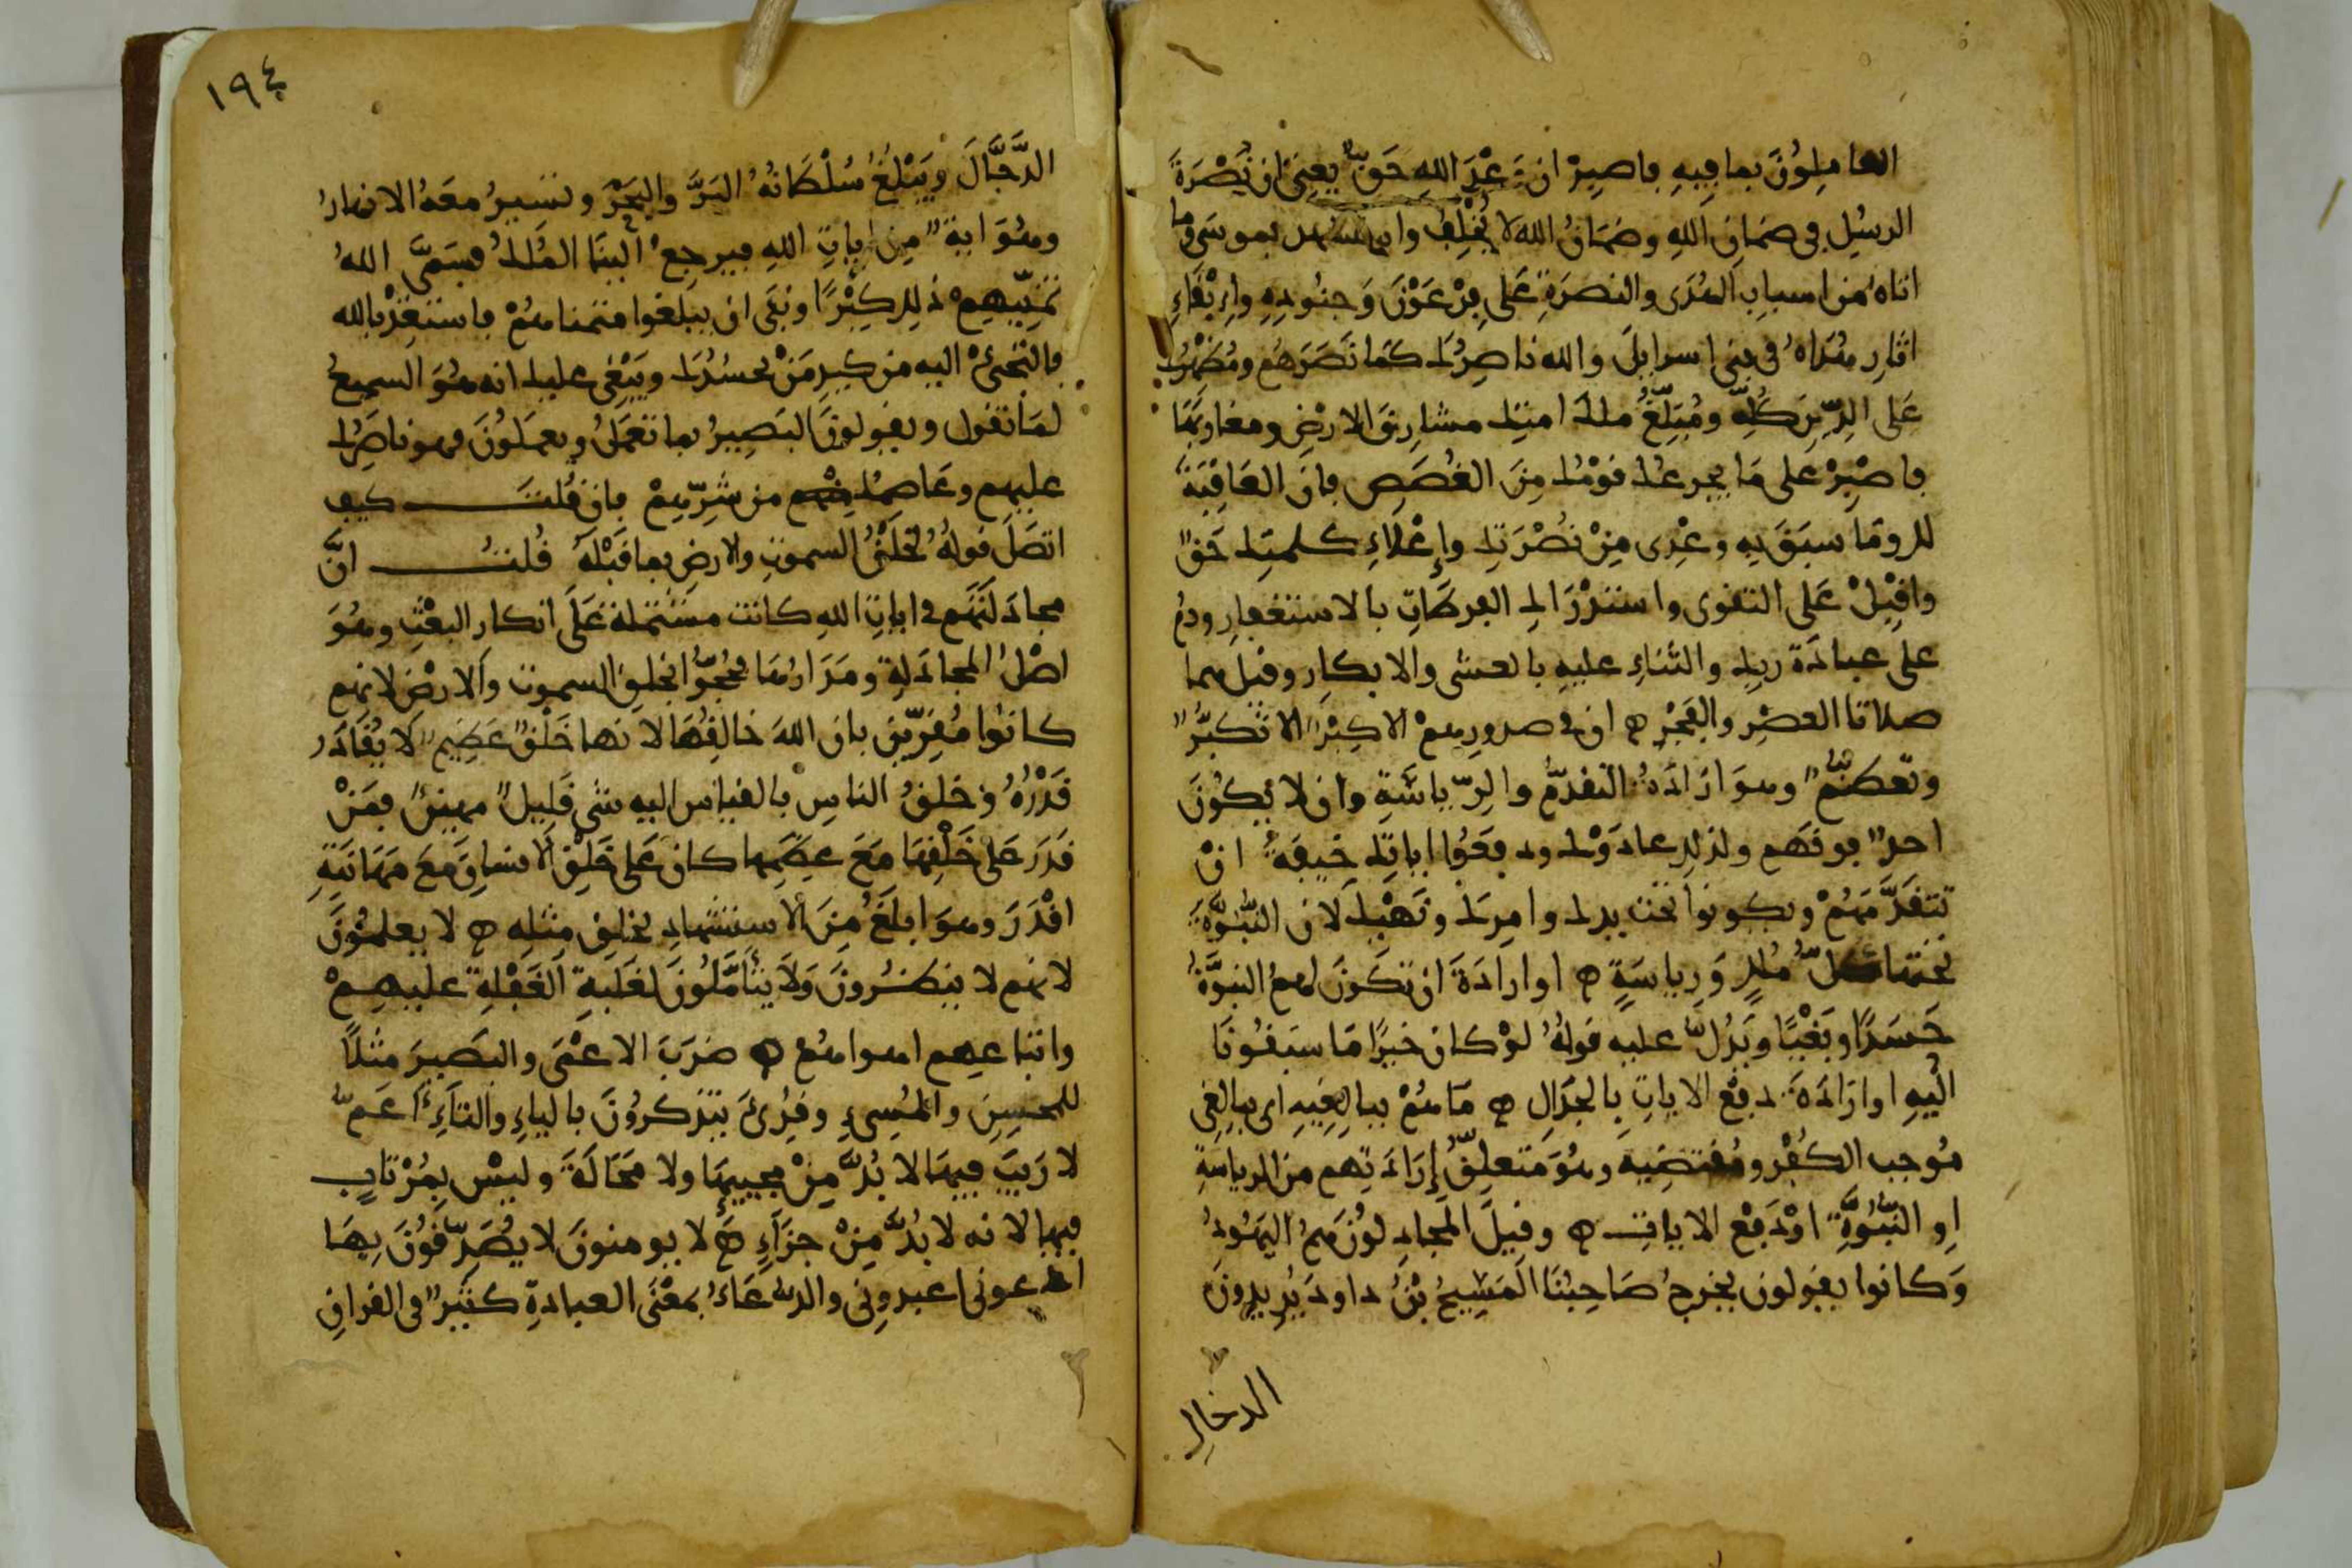 العاملون بما فيه فاصبر ان وعد الله حق يعني ان نصرة
الرسل في ضمان الله وضمان الله لا يخلف واستشهد بموسى وما
اتاه من اسباب الهدى والنصرة على فرعون وجنوده وابقاء
اثار هداه في بني اسرايل والله ناصرك كما نصرهم ومظهرك
على الدين كله ومبلغ ملك امتك مشارق الارض ومغاربها
فاصبر على ما يجرعك قومك من الغصص فان العاقبة
لك وما سبق به وعدي من نصرتك وإعلاء كلمتك حق
واقبل على التقوى واستدرك الفرطات بالاستغفار ودم
على عبادة ربك والثناء عليه بالعشي والابكار وقيل هما
صلاتا العصر والفجر ان في صدورهم الا كبر الا تكبر
وتعظم وهو ارادة التقدم والرياسة وان لا يكون
احد فوقهم ولذلك عادوك ودفعوا اياتك خيفة ان
تتقدمهم ويكونوا تحت يدك وامرك ونهيك لان النبوة
تحتها كل ملك ورياسة او ارادة ان تكون لهم النبوة
حسدا وبغيا ويدل عليه قوله لو كان خيرا ما سبقونا
اليه او ارادة دفع الايات بالجدال ما هم ببالغيه اي ببالغي
موجب الكبر ومقتضيه وهو متعلق إرادتهم من الرياسة
او النبوة او دفع الايات وقيل المجادلون هم اليهود
وكانوا يقولون يخرج صاحبنا المسيح بن داود يريدون
الدجال
١٩٤
الدجال ويبلغ سلطانه البر والبحر وتسير معه الانهار
وهو اية من ايات الله فيرجع الينا الملك فسمى الله
تمنيهم ذلك كبرا ونفى ان يبلغوا متمناهم فاستعذ بالله
فالتجئ اليه من كيد من يحسدك ويبغي عليك انه هو السميع
لما تقول ويقولون البصير بما تعمل ويعملون فهو ناصرك
عليهم وعاصمك من شرهم فان قلت كيف
اتصل قوله لخلق السموت والارض بما قبله قلت ان
مجادلتهم في ايات الله كانت مشتملة على انكار البعث وهو
اصل المجادلة ومدارها فحجوا بخلق السموت والارض لانهم
كانوا مقرين بان الله خالقها لانها خلق عظيم لا يقادر
قدره وخلق الناس بالقياس اليه شي قليل مهين فمن
قدر على خلقها مع عظمها كان على خلق الانسان مع مهانته
اقدر وهو ابلغ من الاستشهاد بخلق مثله لا يعلمون
لانهم لا ينظرون ولا يتأملون لغلبة الغفلة عليهم
واتباعهم اهواهم ضرب الاعمى والبصير مثلا
للمحسن والمسيء وقرئ يتذكرون بالياء والتاء أعم
لا ريب فيها لا بد من مجيئها ولا محالة وليس بمرتاب
فيها لانه لا بد من جزاء لا يومنون لا يصدقون بها
ادعوني اعبدوني والدعاء بمعنى العبادة كثير في القران